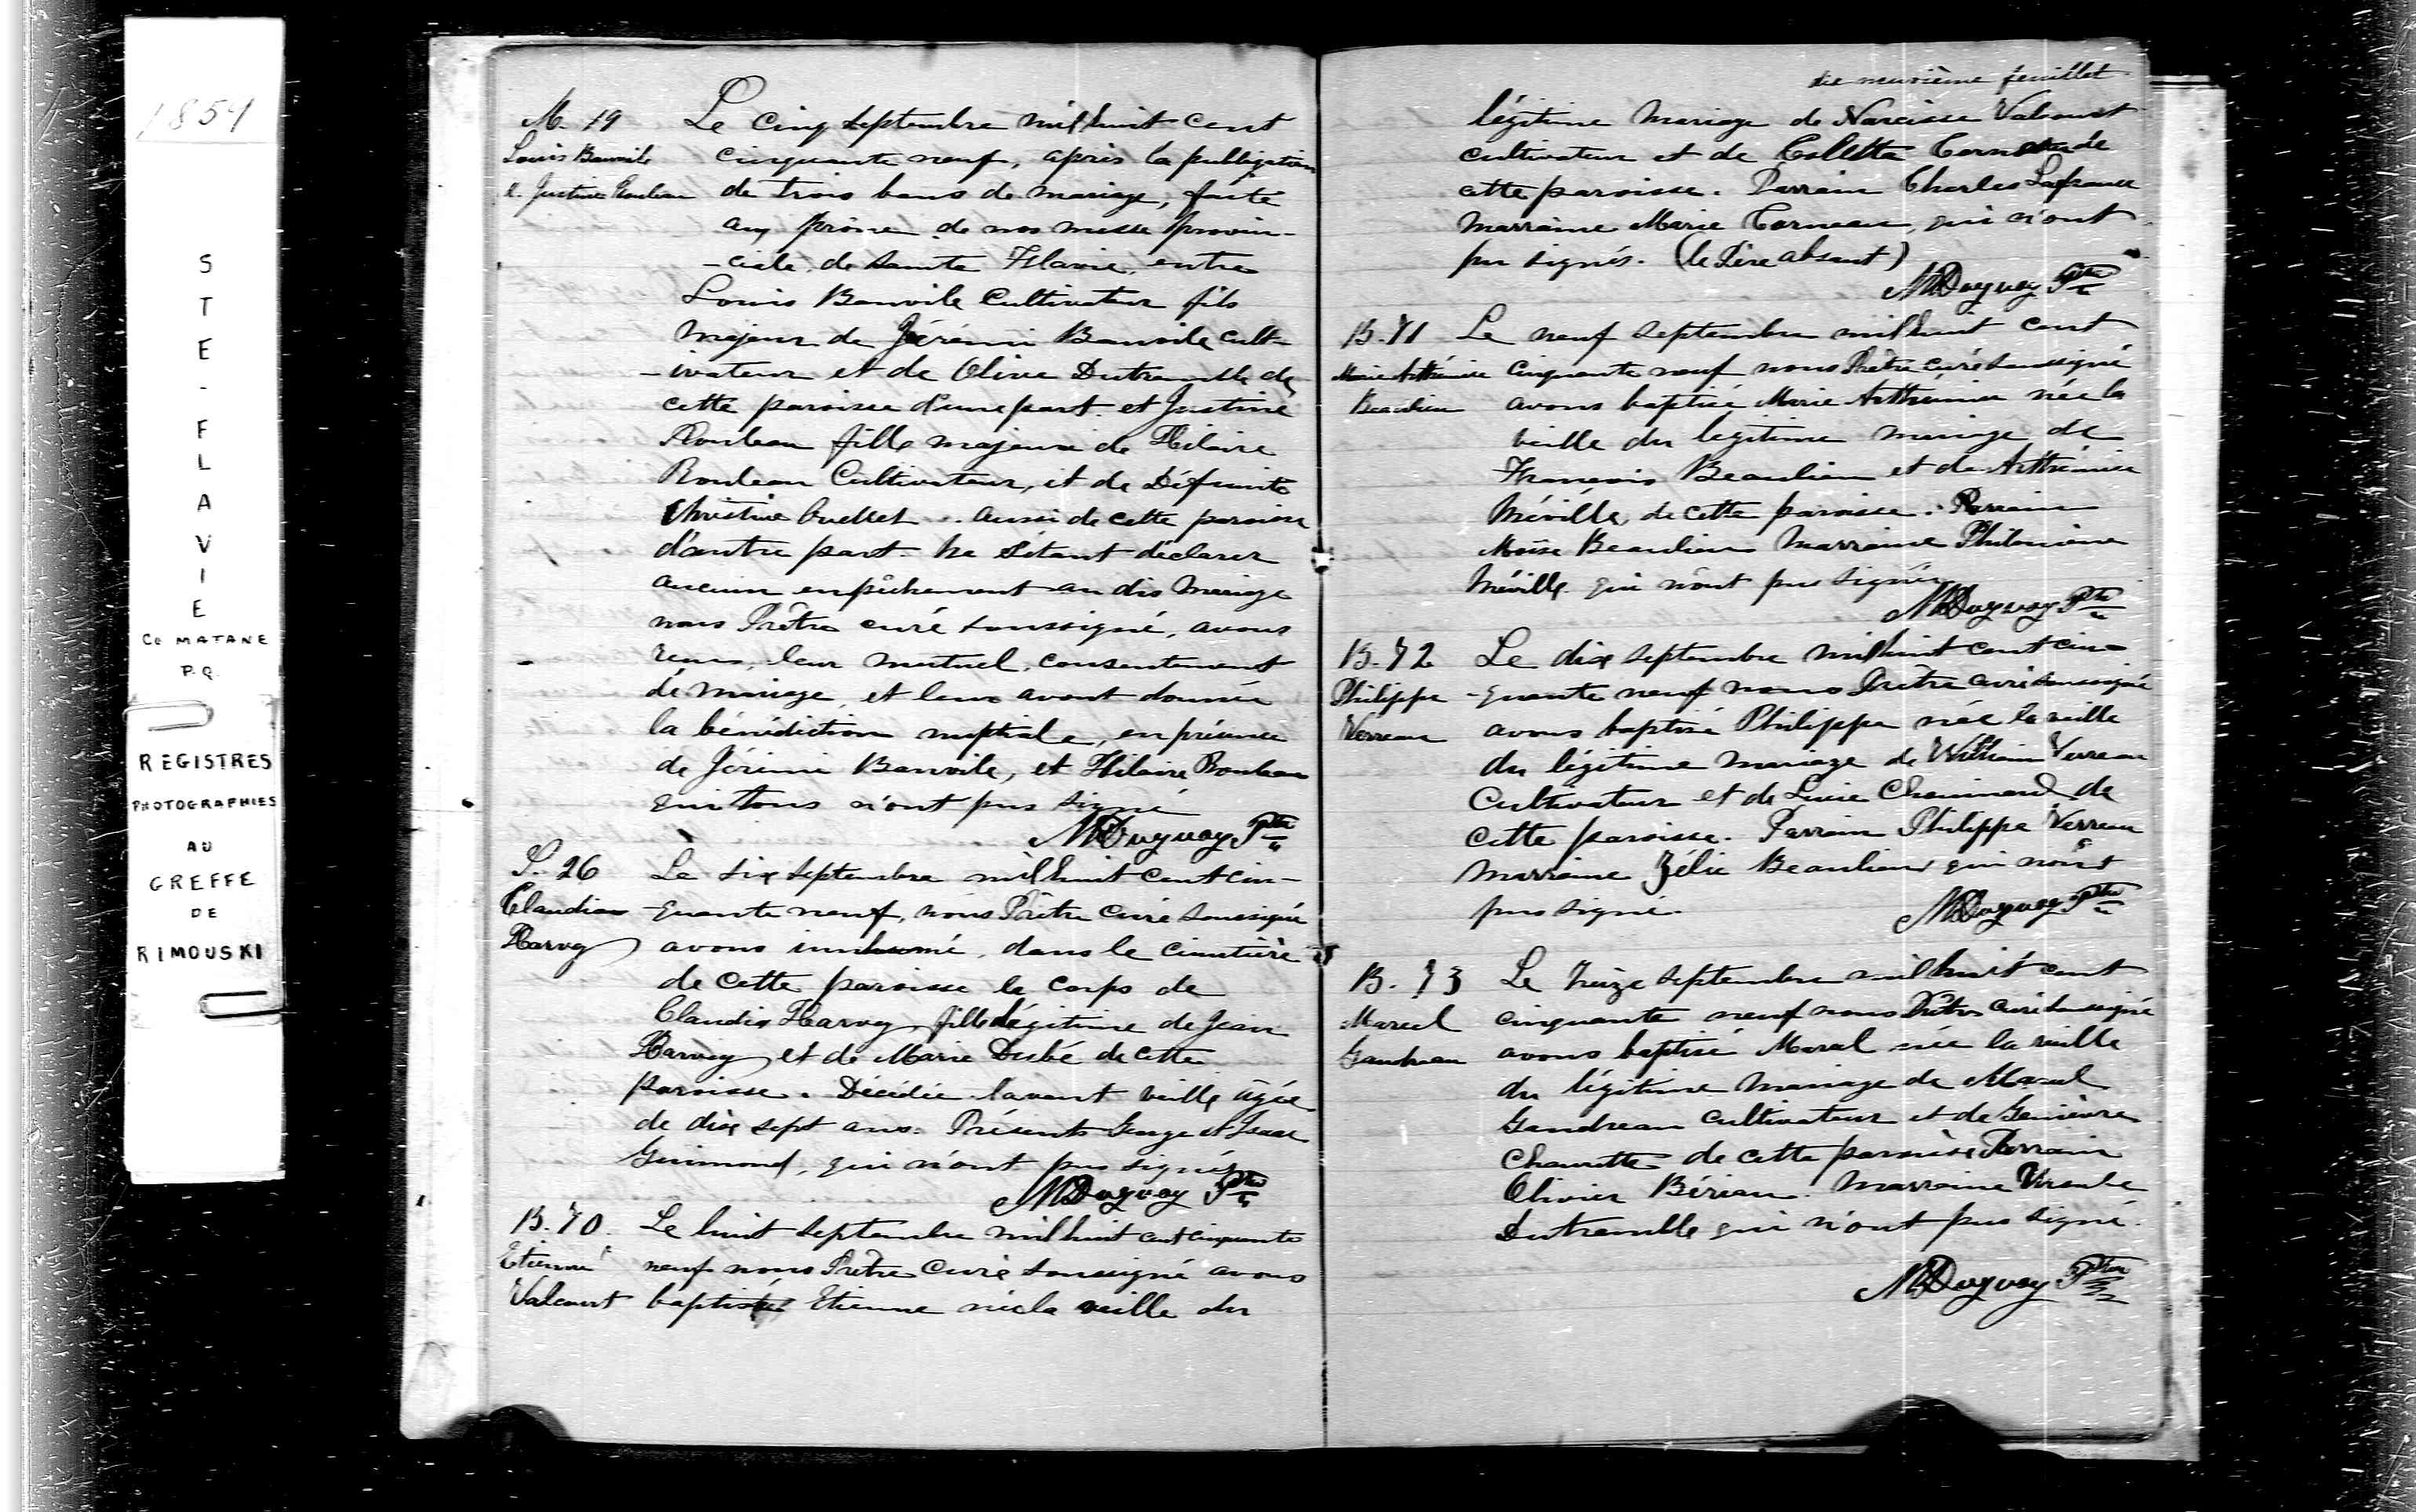 1859
STE-FLAVIE
Co MATANE
P.Q.
REGISTRES
PHOTOGRAPHIES
AU
GREFFE
DE
RIMOUSKI
M. 19
Louis Banvile
&. Justine Rouleau
Le cinq septembre mil huit cent
cinquante neuf, après la publication
de trois bans de mariage, faite
aux prône de nos messe provin-
-ciale, de Sainte Flavie, entre
Louis Banvile Cultivateur fils
majeur de Jérémi Banvile cult-
-ivateur et de Olive Dutremble de
cette paroisse d'une part. et Justine
Rouleau fille majeure de Hilaire
Rouleau Cultivateur, et de Défunte
Christine Ouellet. aussi de cette paroisse
d'autre part. ne s'étant déclarer
aucun enpêchement au dis mariage
nous Prêtre curé soussigné, avons
reçus, leur mutuel, consentement
de mariage, et leur avont donnée
la bénédiction nuptiale, en présence
de Jérémi Banvile, et Hilaire Rouleau
qui tous n'ont pus signé
MDuguay Ptre
S. 26
Claudia
Harvey
Le six septembre mil huit cent cin-
-quante neuf, nous Prêtre curé soussigné
avons innhumé, dans le cimetière
de cette paroisse le corps de
Claudia Harvey, fille légitime de Jean
Harvey et de Marie Dubé de cette
paroisse. Décédée lavant veille âgée
de dix sept ans. Présents George et Isaac
Guimond, qui n'ont pus signés
MDuguay Ptre
B. 70.
Etienne
Valcourt
Le huit septembre mil huit cent cinquante
neuf nous Prêtre Curé soussigné avons
baptisé Etienne née la veille du
dix neuvième feuillet
légitime mariage de Narcisse Valcourt
cultivateur et de Colette de
cette paroisse. Parrain Charles Lafrance
marraine Marie Corneau, qui n'ont
pu signés. (le Père absent)
MDuguay Ptre
B. 71
Marie Arthémise
Beaulieu
Le neuf septembre mil huit cent
cinquante neuf nous Prêtre curé soussigné
avons baptisé Marie Arthémise née la
veille du legitime mariage de
François Beaulieu et de Arthémise
Miville, de cette paroisse. Parrain
Moïse Beaulieu Marraine Philomène
Miville. qui n'ont pus signés
MDuguay Ptre
B. 72
Philippe
Verreau
Le dix septembre mil huit cent cin-
-quante neuf nous Prêtre curé soussigné
avons baptisé Philippe née la veille
du légitime mariage de William Verreau
Cultivateur et de Luce Chouinard de
cette paroisse. Parrain Philippe Verreau
marraine Zélie Beaulieu qui n'ont
pus signé.
MDuguay Ptre
B. 73
Marcel
Gaudreau
Le treize septembre mil huit cent
cinquante neuf nous Prêtre curé soussigné
avons baptisé Marcel née la veille
du légitime mariage de Marcel
Gaudreau cultivateur et de Genièvre
Chourette de cette paroisse Parrain
Olivier Bérian. Marraine Ursule
Dutremble qui n'ont pus signé.
MDuguay Ptre